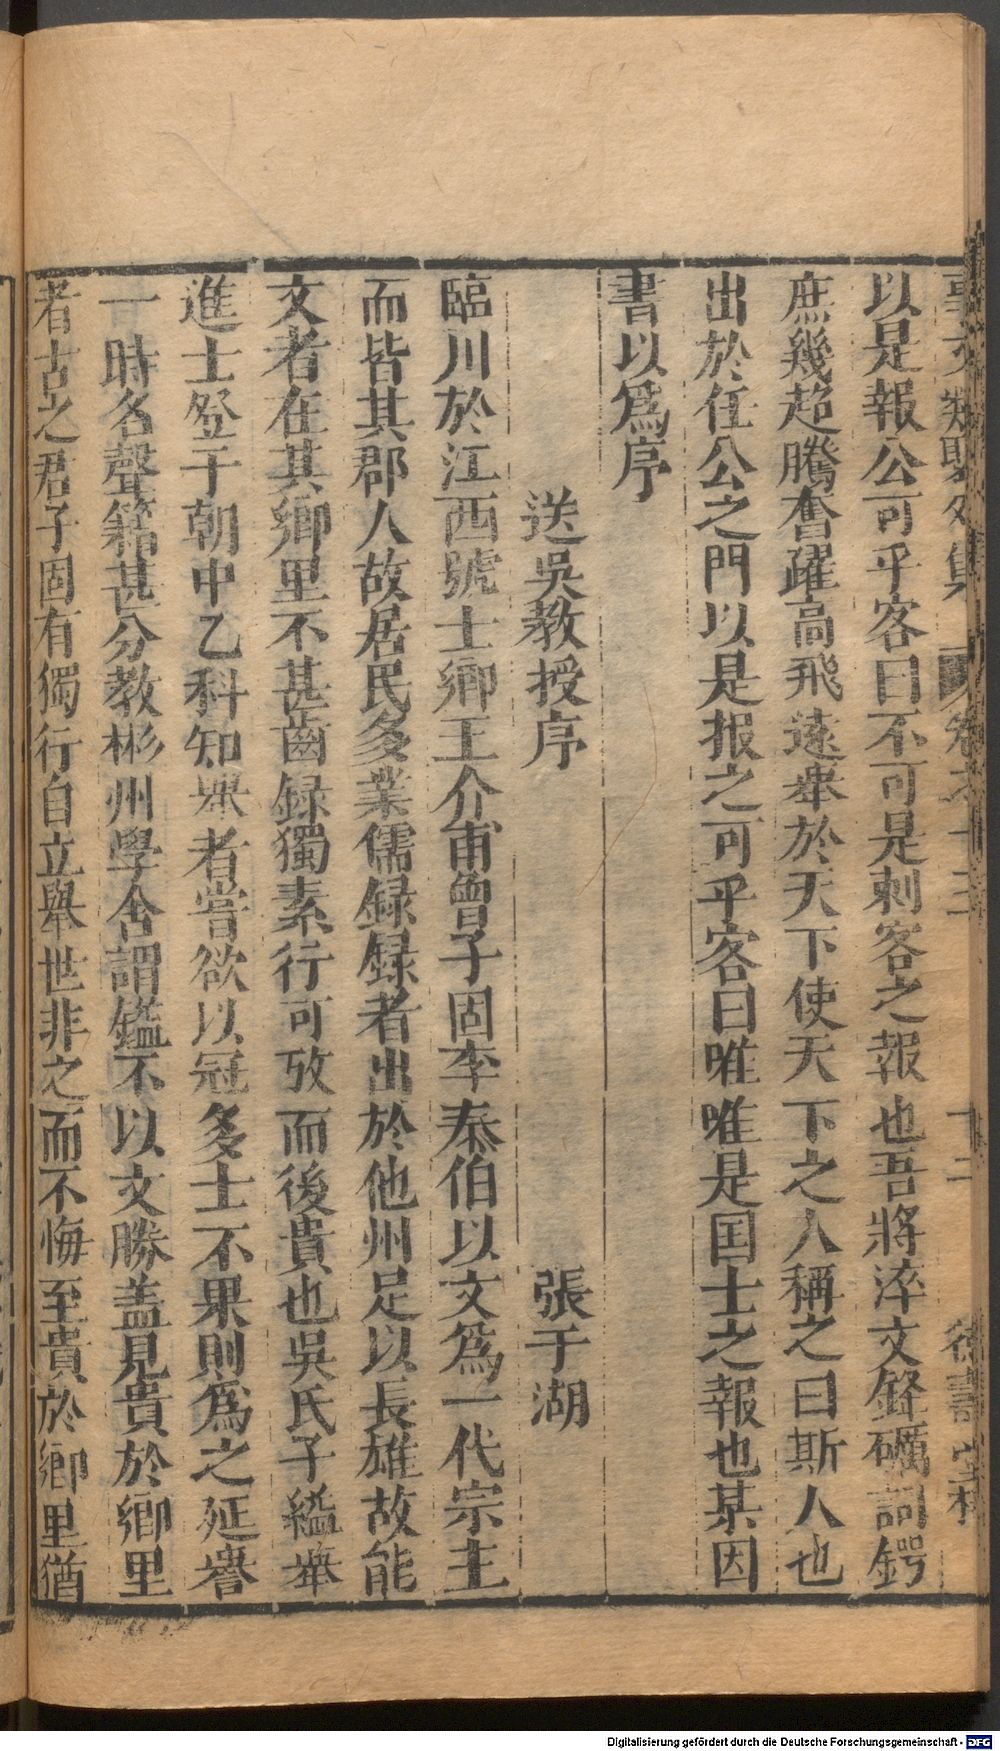 事文類聚外集 卷之十三 十二 德壽堂梓
以是報公可乎客曰不可是刺客之報也吾將淬文鋒礪詞鍔
庶幾超騰奮躍高飛遠舉於天下使天下之人稱之曰斯人也
出於任公之門以是报之可乎客曰唯唯是国士之報也某因
書以爲序
送吳教授序 張于湖
臨川於江西號士鄉王介甫曾子固李泰伯以文爲一代宗主
而皆其郡人故居民多業儒録録者出於他州足以長雄故能
文者在其鄉里不甚齒録獨素行可攷而後貴也吳氏子鎰舉
進士登于朝中乙科知舉者嘗欲以冠多士不果則爲之延譽
一時名聲籍甚分教彬州學舍謂鎰不以文勝盖見貴於鄉里
者古之君子固有獨行自立舉世非之而不悔至貴於鄉里猶
Digitalisierung gefördert durch die Deutsche Forschungsgemeinschaft - DFG